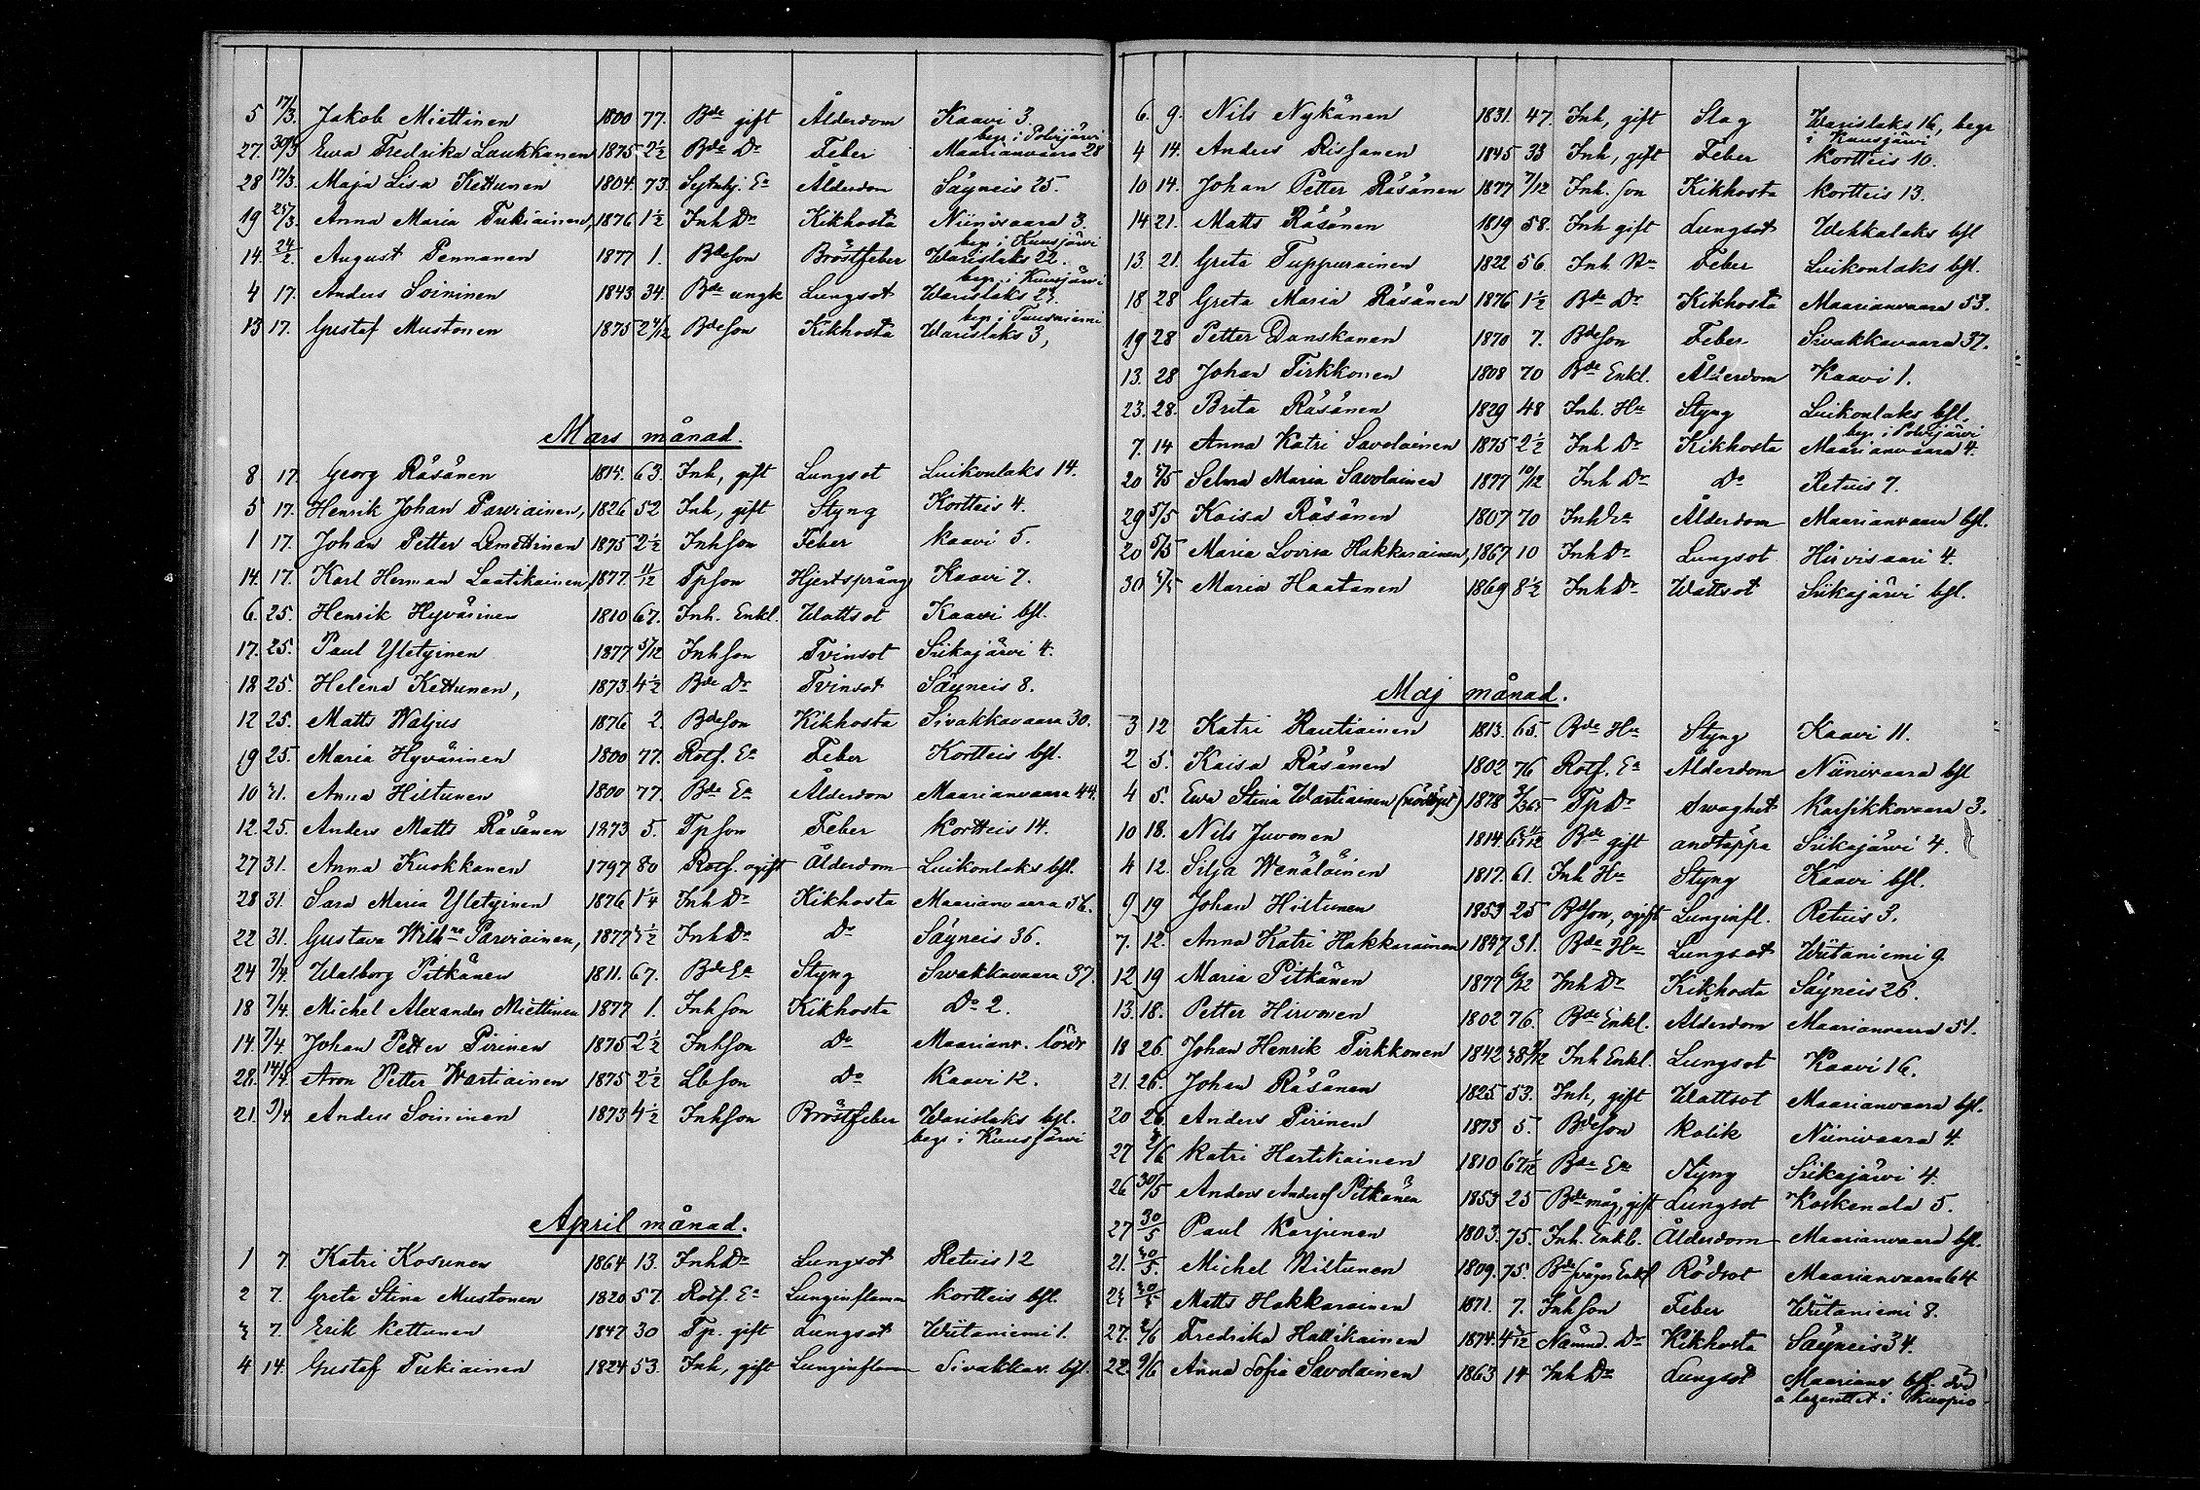 5 17/3. Jakob Miettinen 1800 77. Bde gift Ålderdom Kaavi 3.
begr. i Polvijärvi
27. 30/3 Ewa Fredrika Laukkanen 1875 2½ Bde Dr Feber Maarianvaara 28
28 17/3. Maja Lisa Kettunen 1804. 73. Sytnhj. Ea Ålderdom Säyneis 25.
19 25/3. Anna Maria Tukiainen, 1876 1½ Inh Dr Kikhosta Niinivaara 3.
begr. i Kuusjärvi
14. 24/2. August Pennanen 1877 1. Bde son Bröstfeber Warislaks 22.
begr. i Kuusjärvi
4 17. Anders Soininen 1843 34. Bde ungk Lungsot Warislaks 23.
begr. i Tuusniemi
13 17. Gustaf Mustonen 1875 2 4/12 Bde son Kikhosta Warislaks 3,
Mars månad.
8 17. Georg Räsänen 1815. 63. Inh, gift Lungsot Luikonlaks 14.
5 17. Henrik Johan Parviainen, 1826 52 Inh, gift Styng Kortteis 4.
1 17. Johan Petter 1875 2½ Inh son Feber Kaavi 5.
14. 17. Karl Herman Laatikainen, 1877. 11/12 Tp son Hjertsprång Kaavi 7.
6. 25. Henrik Hyvärinen 1810 67. Inh. Enkl. Wattsot Kaavi bfl.
17. 25. Paul Yletyinen 1877 5/12 Inh son Tvinsot Siikajärvi 4.
18 25. Helena Kettunen, 1873. 4½ Bde Dr Tvinsot Säyneis 8.
12 25. Matts Waljus 1876 2. Bde son Kikhosta Sivakkavaara 30.
19 25. Maria Hyvärinen 1800 77. Rotf. Ea Feber Kortteis bfl.
10 31. Anna Hiltunen 1800 77. Bde Ea Ålderdom Maarianvaara 44.
12. 25. Anders Matts Räsänen 1873 5. Tp son Feber Kortteis 14.
27 31. Anna Kuokkanen 1797 80 Rotf. ogift Ålderdom Luikonlaks bfl.
28 31. Sara Maria Yletyinen 1876 1¼ Inh Dr Kikhosta Maarianvaara 56.
22 31. Gustava Wilhna Parviainen, 1877 ½ Inh Dr Do Säyneis 36.
24 7/4. Walborg Pitkänen 1811. 67. Bde Ea Styng Sivakkavaara 37.
18 7/4. Michel Alexander Miettinen 1877 1. Inh son Kikhosta Do 2.
14. 7/4. Johan Petter Pirinen 1875 2½ Inh son Do Maarianv. lösdr
28. 14/4. Aron Petter Wartiainen 1875 2½ Lb son Do Kaavi 12.
21. /4. Anders Soininen 1873 4½ Inh son Bröstfeber Warislaks bfl.
begr i Kuusjärvi
April månad.
1 7. Katri Kosunen 1864 13. Inh Dr Lungsot Retuis 12
2 7. Greta Stina Mustonen 1820 57. Rotf. Ea Lunginflamm Kortteis bfl.
3 7. Erik Kettunen 1847 30 Tp. gift Lungsot Wiitaniemi 1.
4 14. Gustaf Tukiainen 1824 53. Inh, gift Lunginflamm Sivakkav. bfl.
6. 9. Nils Nykänen 1831. 47. Inh, gift Slag Warislaks 16, begr
i Kuusjärvi
4 14. Anders Rissanen 1845 33 Inh, gift Feber Kortteis 10.
10 14. Johan Petter Räsänen 1877 7/12 Inh. son Kikhosta Kortteis 13.
14 21. Matts Räsänen 1819 58. Inh gift Lungsot Wehkalaks bfl
13. 21. Greta Tuppurainen 1822 56. Inh Hu Feber Luikonlaks bfl.
18 28 Greta Maria Räsänen 1876 1½ Bde Dr Kikhosta Maarianvaara 53.
19 28 Petter Danskanen 1870 7. Bde son Feber Sivakkavaara 37.
13. 28 Johan Tirkkonen 1808 70 Bde Enkl. Ålderdom Kaavi 1.
23. 28. Brita Räsänen 1829 48 Inh. Hu Styng Luikonlaks bfl.
begr. i Polvijärvi
7. 14 Anna Katri Savolainen 1875 2½ Inh Dr Kikhosta Maarianvaara 4.
20 5/5 Selma Maria Savolainen 1877 10/12 Inh Dr Do Retuis 7.
29 5/5 Kaisa Räsänen 1807 70 Inh Ålderdom Maarianvaara bfl.
20 5/5 Maria Lovisa Hakkarainen, 1867 10 Inh Dr Lungsot Hirvisaari 4.
30 5/5 Maria Haatanen 1869 8½ Inh Dr Wattsot Siikajärvi bfl.
Maj månad.
3 12 Katri Rautiainen 1813. 65. Bde Hu Styng Kaavi 11.
2 5. Kaisa Räsänen 1802 76 Rotf. Ea Ålderdom Niinivaara bfl
4 5. Ewa Stina Wartiainen (nöddöpt) 1878 3/365 Tp Dr Svaghet Karsikkovaara 3.
10 18. Nils Juvonen 1814. 63 11/12 Bde gift andtäppa Siikajärvi 4.
4 12. Silja Wenäläinen 1817. 61. Inh Hu Styng Kaavi bfl.
9 19 Johan Hiltunen 1853 25 Bde son, ogift Lunginfl. Retuis 3.
7. 12. Anna Katri Hakkarainen 1847 31. Bde Hu Lungsot Wiitaniemi 9.
12 19 Maria Pitkänen 1877 6/12 Inh Dr Kikhosta Säyneis 26.
13. 18. Petter Hirvonen 1802 76. Bde Enkl. Ålderdom Maarianvaara 51.
18 26. Johan Henrik Tirkkonen 1842 Inh Enkl. Lungsot Kaavi 16.
21. 26. Johan Räsänen 1825 53. Inh, gift Wattsot Maarianvaara bfl.
20 26 Anders Pirinen 1873 5. Bde son Kolik Niinivaara 4.
27 2/6 Katri Hartikainen 1810 67 Bde Ea Styng Siikajärvi 4.
26 30/5 Anders Andersf Pitkänen 1853 25 Bde måg, gift Lungsot Koskenala 5.
27 30/5 Paul Karjunen 1803. 75. Inh. Enkl. Ålderdom Maarianvaara bfl.
21. 30/5 Michel Hiltunen 1809. 75. Bde svåger Enkl Rödsot Maarianvaara 64
23 30/5 Matts Hakkarainen 1871. 7. Inh son Feber Wiitaniemi 8.
27. 2/6 Fredrika Hallikainen 1874. 4 Nämnd. Dr Kikhosta Säyneis 34.
22. 9/6 Anna Sofia Savolainen 1863 14 Inh Dr Lungsot Maarianv. bfl. död
a lazarettet i Kuopio